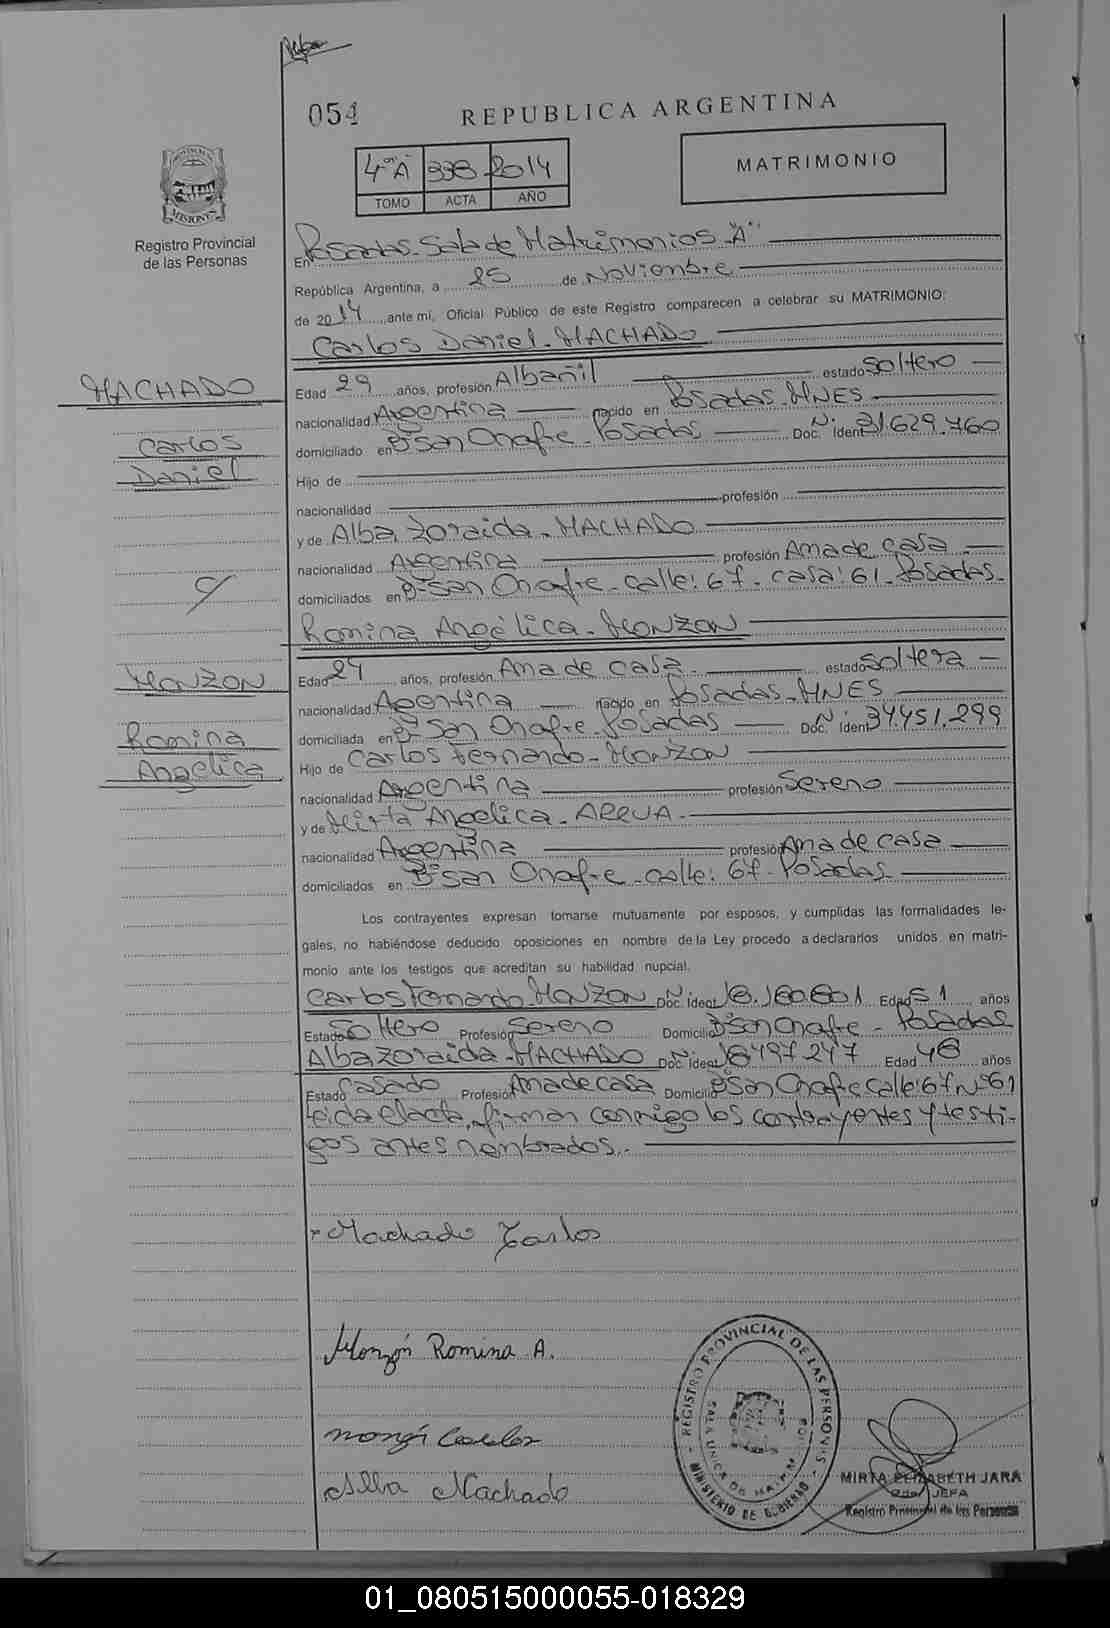 054
REPUBLICA ARGENTINA
4º "A" 338 2014
TOMO ACTA AÑO
MATRIMONIO
MISIONES
Registro Provincial
de las Personas
En Posadas-Sala de Matrimonios "A"
República Argentina, a 25 de Noviembre
de 2014 ante mi, Oficial Público de este Registro comparecen a celebrar su MATRIMONIO:
Carlos Daniel-MACHADO
MACHADO
Carlos
Daniel
Edad 29 años, profesión Albañil estado soltero
nacionalidad Argentina nacido en Posadas-MNES
domiciliado en Bº San Onofre-Posadas Doc. Nº Ident. 31.629.760
Hijo de
nacionalidad profesión
y de Alba Zoraida-MACHADO
nacionalidad Argentina profesión Ama de casa
domiciliados en Bº San Onofre-calle: 67-casa: 61-Posadas-
Y
Romina Angélica-MONZON
MONZON
Romina
Angélica
Edad 24 años, profesión Ama de casa estado soltera
nacionalidad Agentina nacido en Posadas-MNES
domiciliada en Bº San Onofre-Posadas Doc. Nº Ident. 34.451.299
Hijo de Carlos Fernando-MONZON
nacionalidad Argentina profesión Sereno
y de Mirta Angelica-ARRUA-
nacionalidad Argentina profesión Ama de casa
domiciliados en Bº San Onofre-calle: 67-Posadas-
Los contrayentes expresan tomarse mutuamente por esposos, y cumplidas las formalidades le-
gales, no habiéndose deducido oposiciones en nombre de la Ley procedo a declararlos unidos en matri-
monio ante los testigos que acreditan su habilidad nupcial.
Carlos Fernando-MONZON Doc. Nº ident. 16.160.601 Edad 51 años
Estado Soltero Profesión Sereno Domicilio Bº San Onofre-Posadas
Alba Zoraida-MACHADO Doc. Nº ident. 18497247 Edad 48 años
Estado Casado Profesión Ama de casa Domicilio Bº San Onofre calle: 67 Nº 61
Leida el acta, firman conmigo los contrayentes y testi-
gos antes nombrados.-
Machado Carlos
Monzón Romina A.
Monzón Carlos
Alba Machado
REGISTRO PROVINCIAL DE LAS PERSONAS
MINISTERIO DE GOBIERNO
SALA UNICA DE MATRIMONIOS
MIRTA ELIZABETH JARA
JEFA
Registro Provincial de las Personas
01_080515000055-018329